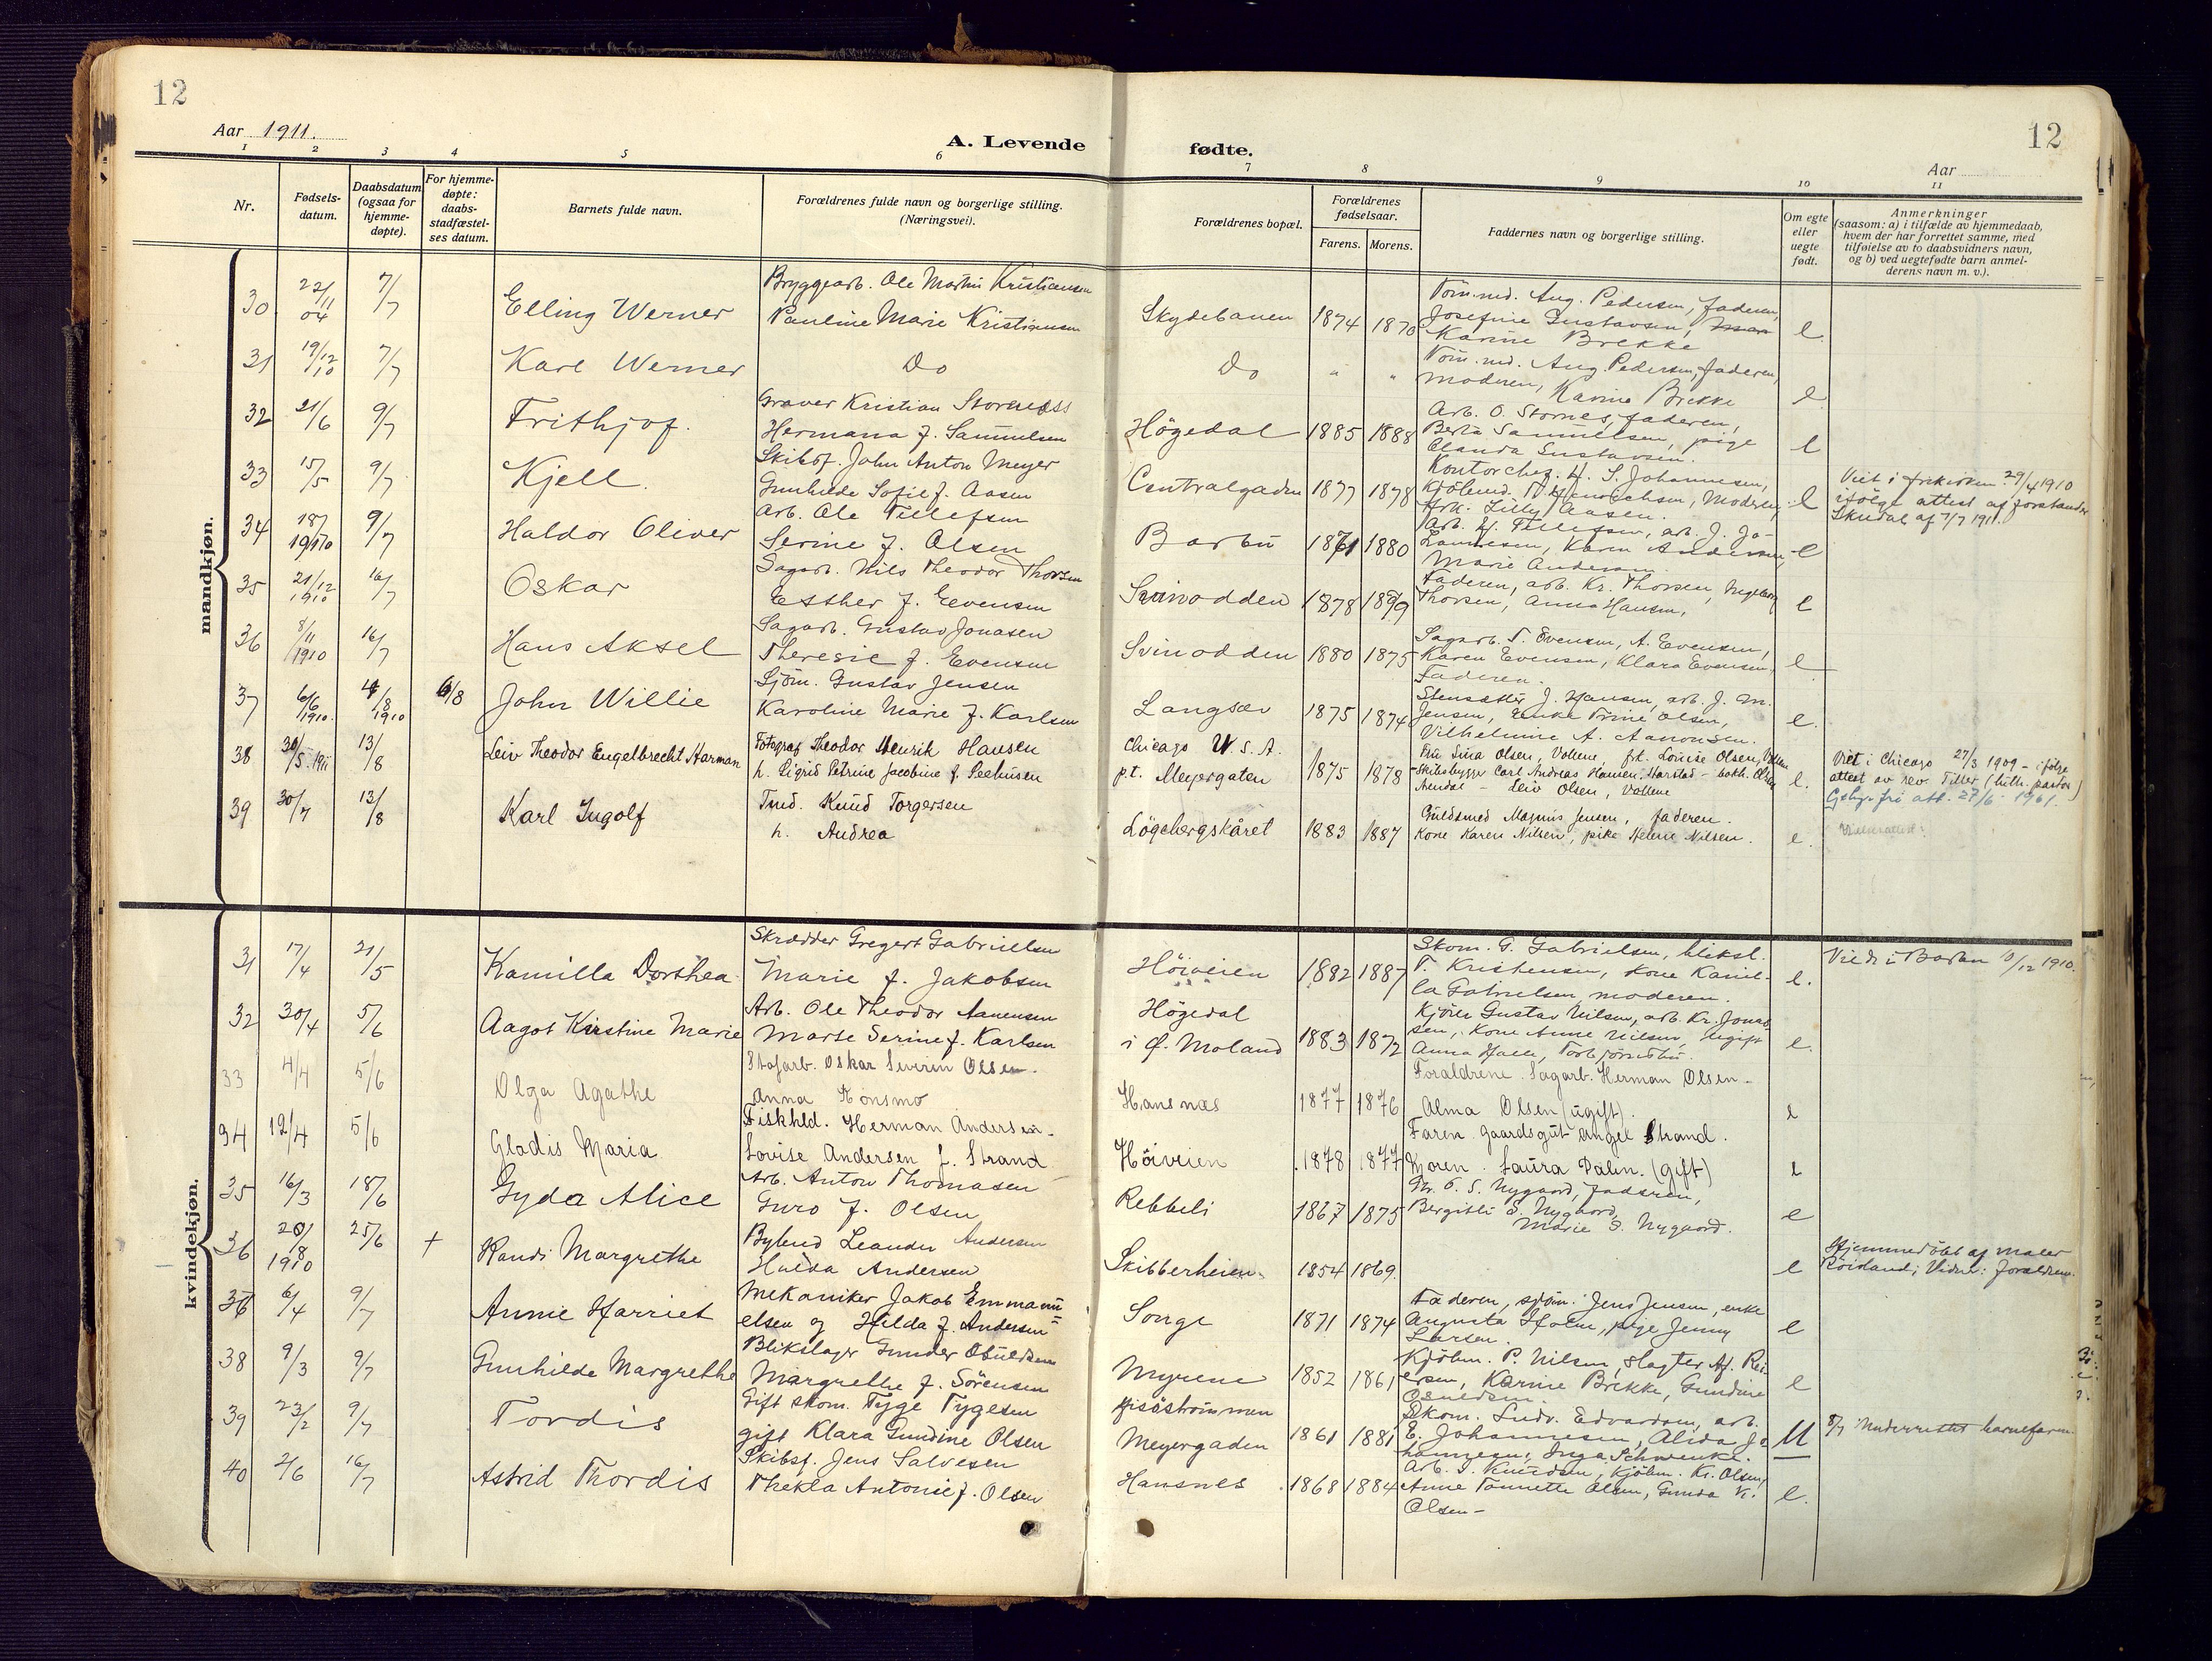 12
12
Aar 1911.
A. Levende fødte.
Aar
1 2 3 4 5 6 7 8 9 10 11
Nr.
Fødsels-
datum.
Daabsdatum
(ogsaa for
hjemme-
døpte).
For hjemme-
døpte:
daabs-
stadfæstel-
ses datum.
Barnets fulde navn.
Forældrenes fulde navn og borgerlige stilling.
(Næringsvei).
Forældrenes bopæl.
Forældrenes
fødselsaar.
Farens. Morens.
Faddernes navn og borgerlige stilling.
Om egte
eller
uegte
født.
Anmerkninger
(saasom: a) i tilfælde av hjemmedaab,
hvem der har forrettet samme, med
tilføielse av to daabsvidners navn,
og b) ved uegtefødte barn anmel-
derens navn m. v.).
mandkjøn.
30 22/11 04 7/7 Elling Werner
Bryggearb. Ole Martin Kristiansen
Pauline Marie Kristiansen
Skydebanen 1874 1870
Tøm.md. Aug. Pedersen, faderen,
Josefine Gustavsen,
Karine Brekke
e
31 19/12 10 7/7 Karl Werner Do Do " "
Tøm.md. Aug. Pedersen, faderen,
moderen, Karine Brekke
e
32 21/6 9/7 Frithjof.
Graver Kristian Stornes
Hermana f. Samuelsen
Högedal 1885 1888
Arb. O. Stornes, faderen,
Berta Samuelsen, pige
Gustavsen.
e
33 15/5 9/7 Kjell.
Skibsf. John Anton Meyer
Gunhilde Sofie f. Aasen
Centralgaden 1877 1878
Kontorchef. H. S. Johannesen,
Moderen,
Frk. Lilly Aasen.
e
Viet i frikirken 29/4 1910
ifølge attest af forstander
Skudal af 7/7 1911
34 18/7 1910 9/7 Haldor Oliver
Arb. Ole Tellefsen
Serine f. Olsen
Barbu 1871 1880
Arb. H. Tellefsen, arb. J. Jo-
hannesen, Karen Andersen,
Marie Andersen.
e
35 21/12 1910 16/7 Oskar
Sagarb. Nils Theodor Thorsen
Esther f. Evensen
Svinodden 1878 1899
Faderen, arb. Kr. Thorsen, Ingeborg
Thorsen, Anna Hansen,
e
36 8/11 1910 16/7 Hans Aksel
Sagarb. Gustav Jonasen
Theresie f. Evensen
Svinodden 1880 1875
Sagarb. T. Evensen, A. Evensen,
Karen Evensen, Klara Evensen,
Faderen.
e
37 6/6 1910. 4/8 1910 6/8 John Willie
Sjøm. Gustav Jensen
Karoline Marie f. Karlsen
Langsæv 1875 1874
Stensætter J. Hansen, arb. J. M.
Jensen, Enke Trine Olsen,
Vilhelmine A. Aanonsen.
e.
38 30/5 1911 13/8 Leiv Theodor Engelbrecht Harman
Fotograf Theodor Henrik Hansen
h. Sigrid Petrine Jacobine f. Seehusen
Chicago U.S.A.
p.t. Meyergaten 1875 1878
Fru Sina Olsen, Vollene, frk. Louise Olsen, Vollen
Skibsbygger Carl Andreas Hansen, Harstad - bokh. Olsen
Arendal - Leiv Olsen, Vollene
e.
Viet i Chicago 27/3 1909 - ifølge
attest av rev. Tiller (luth. pastor)
Gebyrfri att. 27/6 - 1961.
39 30/7 13/8 Karl Ingolf
Tmd. Knud Torgersen
h. Andrea
Lögebergskåret 1883 1887
Guldsmed Magnus Jensen, faderen.
Kone Karen Nilsen, pike Helene Nilsen.
e.
kvindekjøn.
31 17/4 21/5 Kamilla Dorthea
Skrædder Gregert Gabrielsen
Marie f. Jakobsen
Høiveien 1882 1887
Skom. G. Gabrielsen, bliksl.
T. Kristensen, kone Kamil-
la Gabrielsen, moderen.
e.
Viet i Barbu 10/12 1910.
32 30/4 5/6 Aagot Kirstine Marie
Arb. Ole Theodor Aanensen
Marte Serine f. Karlsen
Högedal
i Ø. Moland 1883 1872
Kjörer Gustav Nilsen, arb. Kr. Jonas-
sen, Kone Anne Nilsen, Ugift
Anna Halle,
e.
33 4/4 5/6 Olga Agathe
Stofarb. Oskar Severin Olsen.
Anna Rönsmo
Hansnæs 1877 1876
Foraldrene. Sagarb. Herman Olsen -
Alma Olsen (ugift).
e
34 12/4 5/6 Gladis Maria
Fiskhld. Herman Andersen.
Lovise Andersen f. Strand
Høiveien 1878 1877
Faren. gaardsgut Angel Strand.
Moren. Laura Dalin. (gift)
e
35 16/3 18/6 Gyda Alice
Arb. Anton Thomasen
Guro f. Olsen
Rebbeli 1867 1875
O. S. Nygaard, faderen,
Bergitte S. Nygaard,
Marie S. Nygaard.
e
36 20/8 1910 25/6 + Randi Margrethe
Bybud Leander Andersen
Hulda Andersen
Skibberheien 1854 1869
e
Hjemmedöbt af maler
Röisland; Vidner: forældrene.
36 6/4 9/7 Annie Harriet
Mekaniker Jakob Emmanu-
elsen og Hilda f. Andersen
Songe 1871 1874
Faderen, sjøm. Jens Jensen, enke
Augusta Holm, pige Jenny
Larsen.
e
38 9/3 9/7 Gunhilde Margrethe
Blikslager Gunder Osuldsen
Margrethe f. Sörensen
Myrene 1852 1861
Kjøbm. P. Nilsen, slagter Af. Rei-
ersen, Karine Brekke, Gundine
Osuldsen.
e
39 23/2 9/7 Tordis
Gift skom. Tyge Tygesen
gift Klara Gundine Olsen
Hisöströmmen
Meyergaden 1861 1881
Skom. Ludv. Edvardsen, arb.
E. Johannesen, Alida Jo-
hannesen, Inga Schwenke.
U
8/7 Underrettet barnefaren
40 2/6 16/7 Astrid Thordis
Skibsf. Jens Salvesen
Thekla Antonie f. Olsen
Hansnes 1868 1884
Arb. S. Knudsen, Kjöbm. Kr. Olsen,
Anne Tonnette Olsen, Gunda K.
Olsen -
e.